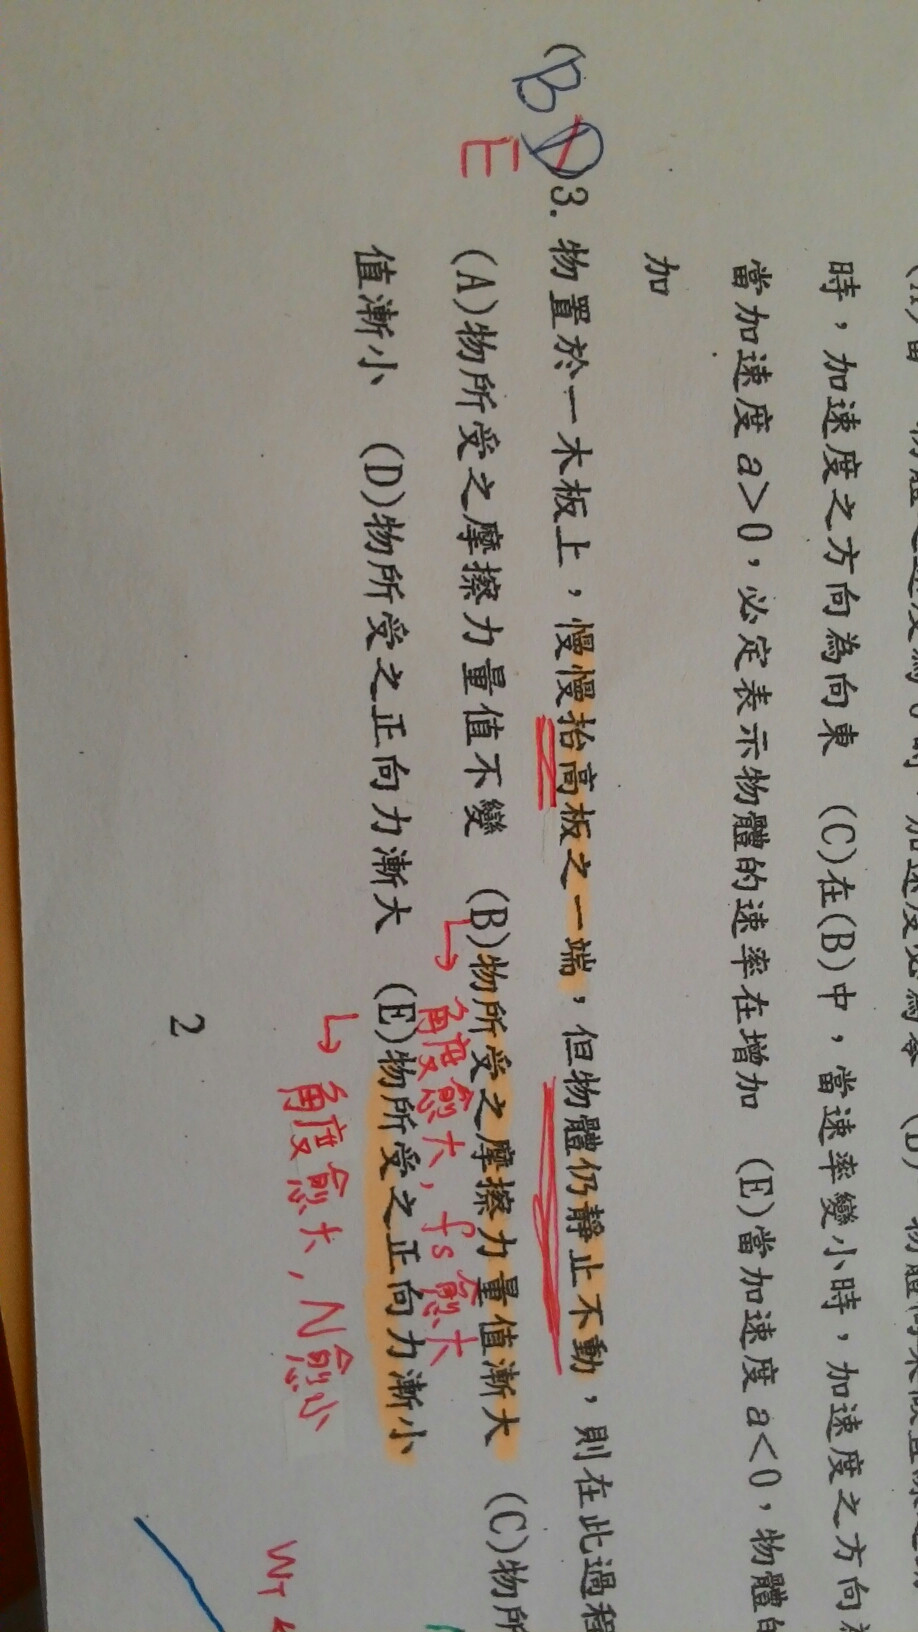 時，加速度之方向為向東 (C)在(B)中，當速率變小時，加速度之方向
當加速度a>0，必定表示物體的速率在增加 (E)當加速度a<0，物體的
加
(BD)3. 物置於一木板上，慢慢抬高板之一端，但物體仍靜止不動，則在此過程
E
(A)物所受之摩擦力量值不變 (B)物所受之摩擦力量值漸大 (C)物所
角度愈大, fs愈大
值漸小 (D)物所受之正向力漸大 (E)物所受之正向力漸小
角度愈大, N愈小
2
WT